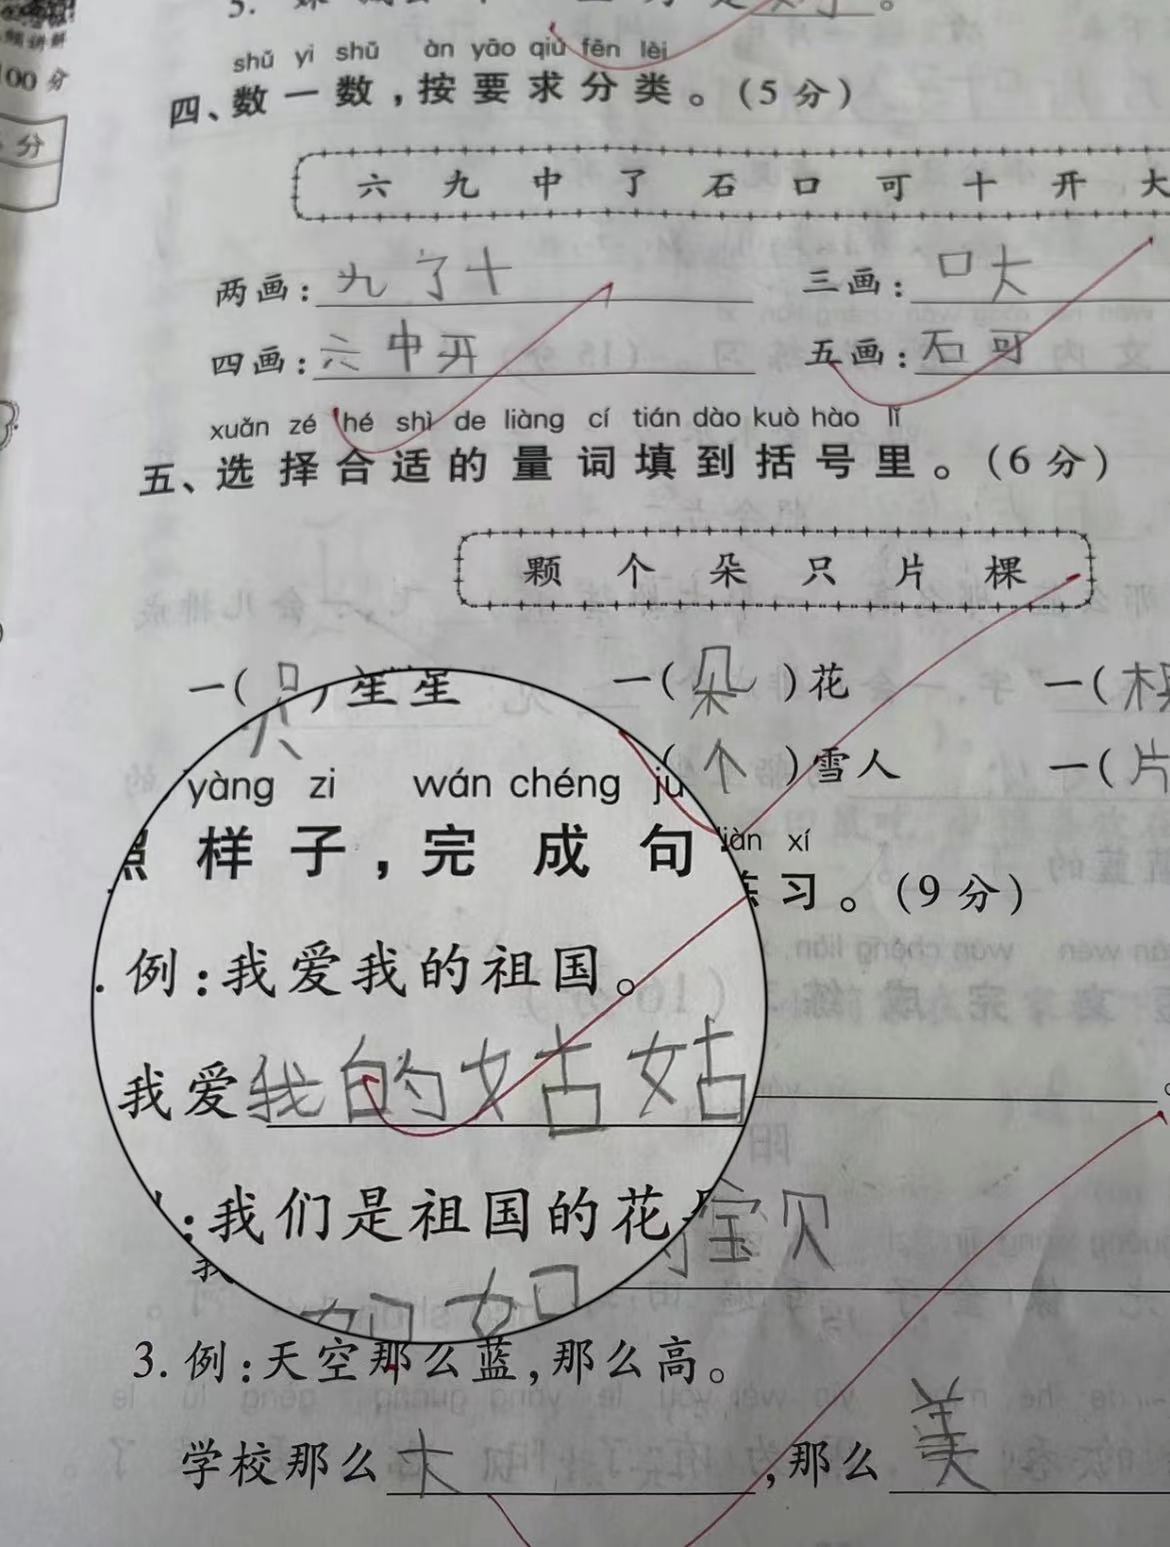 频讲解
100 分
分
shǔ yi shǔ àn yāo qiú fēn lèi
四、数一数,按要求分类。(5分)
六 九 中 了 石 口 可 十 开 大
两画:九 了 十 三画:口 大
四画:六 中 开 五画:石 可
xuǎn zé hé shì de liàng cí tián dào kuò hào lǐ
五、选择合适的量词填到括号里。(6分)
颗 个 朵 只 片 棵
一(只)星星 一(朵)花 一(棵
(个)雪人 一(片
yàng zi wán chéng jù liàn xí
照样子,完成句 练习。(9分)
. 例:我爱我的祖国。
我爱我的姑姑
:我们是祖国的花
宝贝
3. 例:天空那么蓝,那么高。
学校那么大,那么美